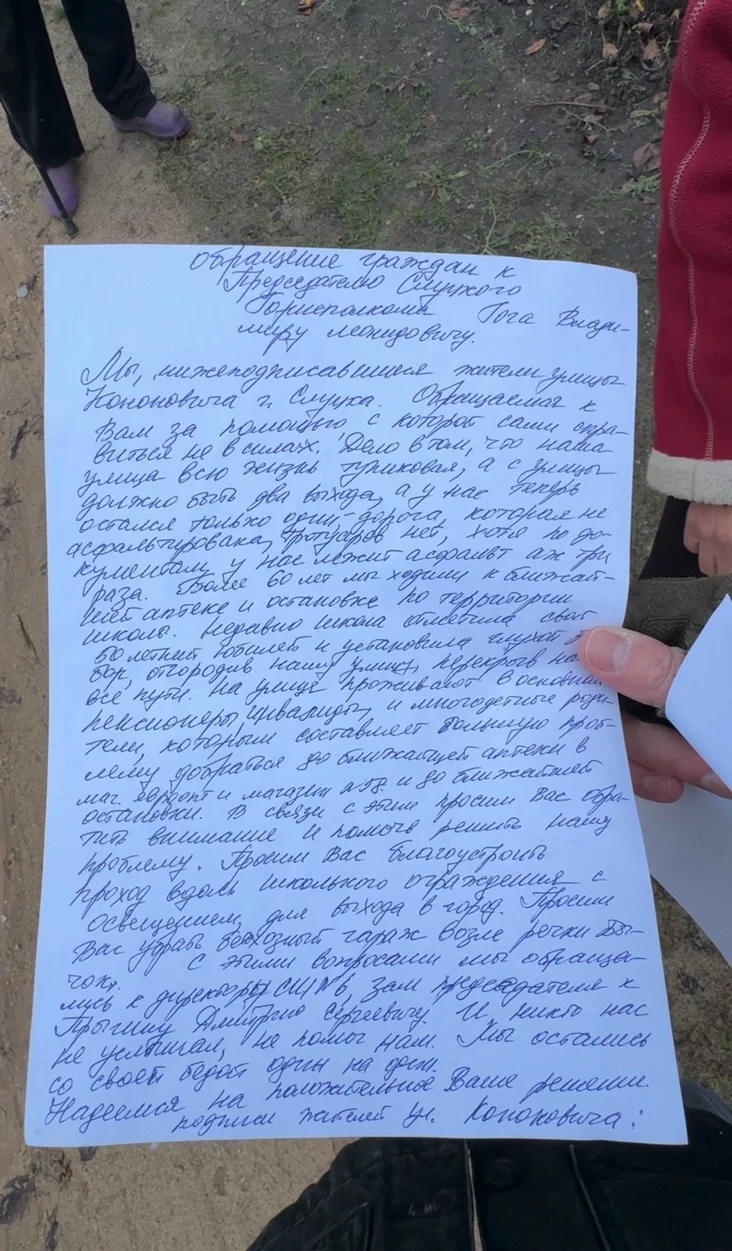 обращение граждан к
Председателю Слуцкого
Горисполкома Гога Влади-
миру Леонидовичу.
Мы, нижеподписавшиеся жители улицы
Кононовича г. Слуцка. Обращаемся к
Вам за помощью с которой сами спра-
виться не в силах. Дело в том, что наша
улица всю жизнь тупиковая, а с улицы
должно быть два выхода, а у нас теперь
остался только один-дорога, которая не
асфальтирована, тротуаров нет, хотя по до-
кументам у нас лежит асфальт аж три
раза. Более 60 лет мы ходили к ближай-
шей аптеке и остановке по территории
школы. Недавно школа отметила свой
50 летний юбилей и установила глухой
бор, отгородив нашу улицу, перекрыв
все пути. На улице проживают в основном
пенсионеры, инвалиды, и многодетные роди-
тели, которым составляет большую проб-
лему добраться до ближайшей аптеки в
маг. и магазин и до ближайшей
остановки. В связи с этим просим Вас обра-
тить внимание и помочь решить нашу
проблему. Просим Вас благоустроить
проход вдоль школьного ограждения с
освещением, для выхода в город. Просим
Вас убрать бесхозный гараж возле речки Бы-
чок. С этими вопросами мы обраща-
лись к директору СШ№6, зам председателя к
Прыгину Дмитрию Сергеевичу. И никто нас
не услышал, не помог нам. Мы остались
со своей бедой один на один.
Надеемся на положительное Ваше решение.
подписи жителей ул. Кононовича: